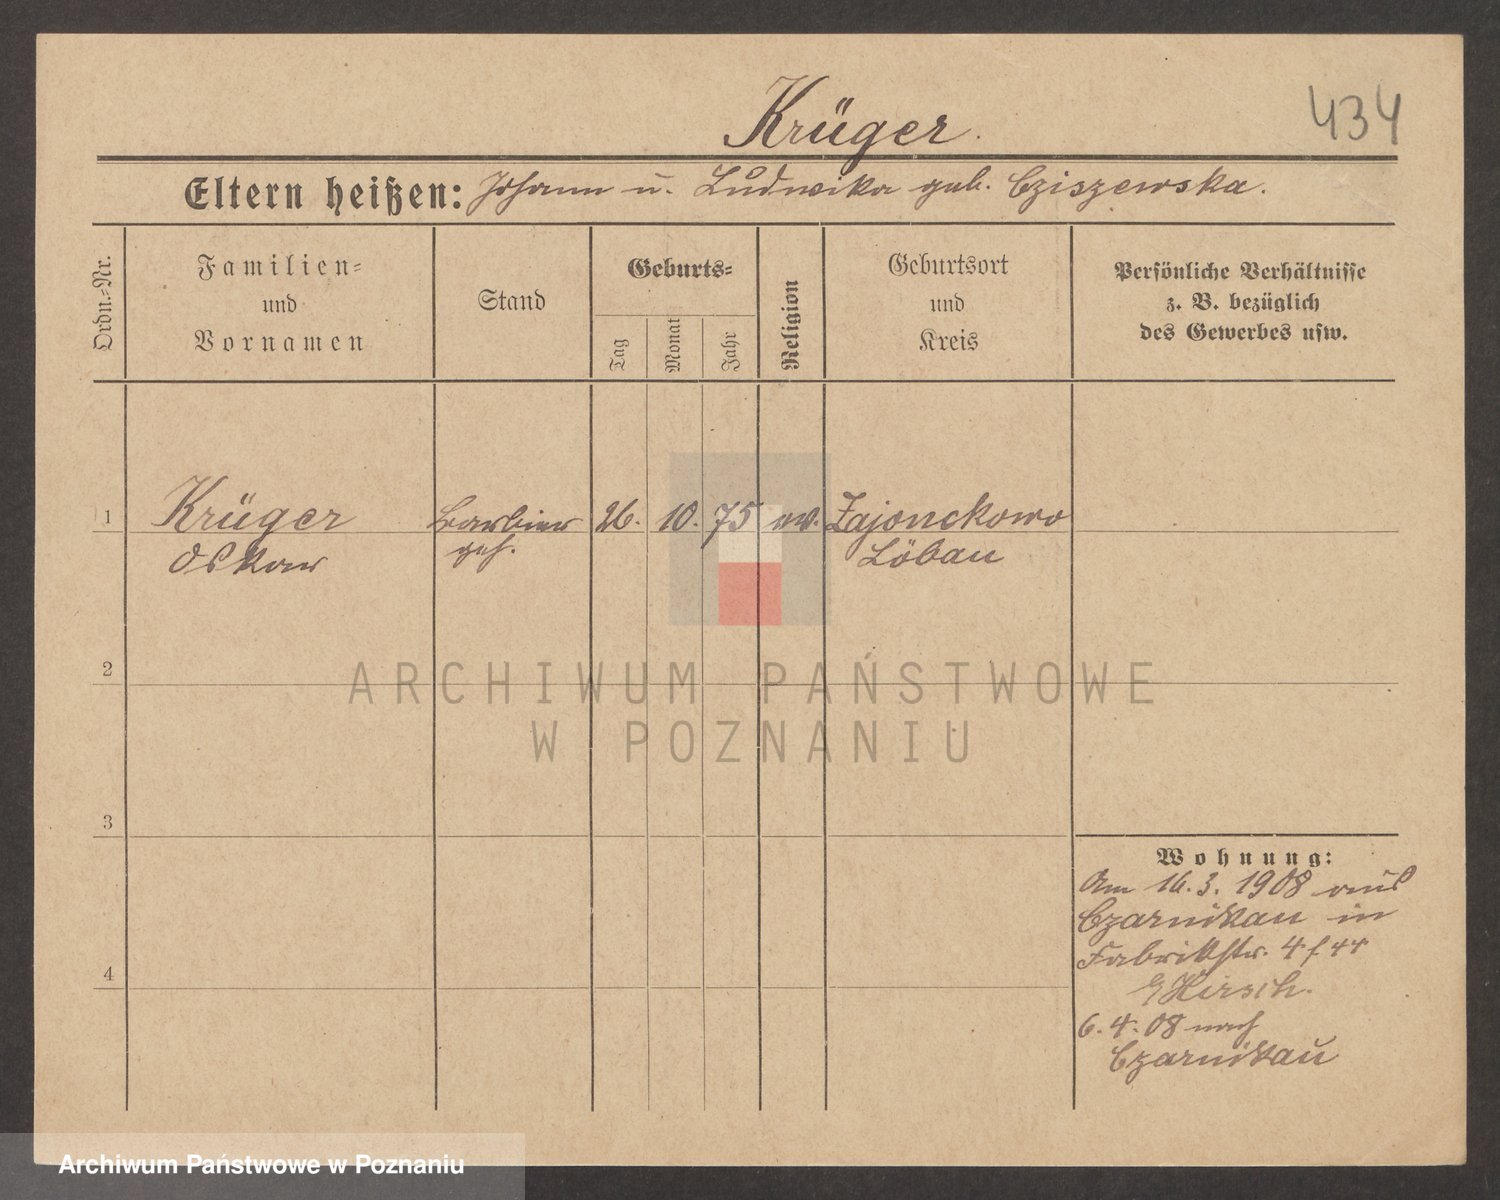 Krüger.
434
Eltern heißen: Johann u. Ludwika geb. Cziszewska.
Ordn.-Nr.
Familien-
und
Vornamen
Stand
Geburts-
Tag
Monat
Jahr
Religion
Geburtsort
und
Kreis
Persönliche Verhältnisse
z. B. bezüglich
des Gewerbes usw.
1 Krüger Barbier 26. 10. 75 ev. Zajonckowo
Oskar geh. Löbau
2
3
4
Wohnung:
Am 16.3. 1908 aus
Czarnikau in
Fabrikstr.
Hirsch.
6. 4. 08 nach
Czarnikau
ARCHIWUM PAŃSTWOWE
W POZNANIU
Archiwum Państwowe w Poznaniu